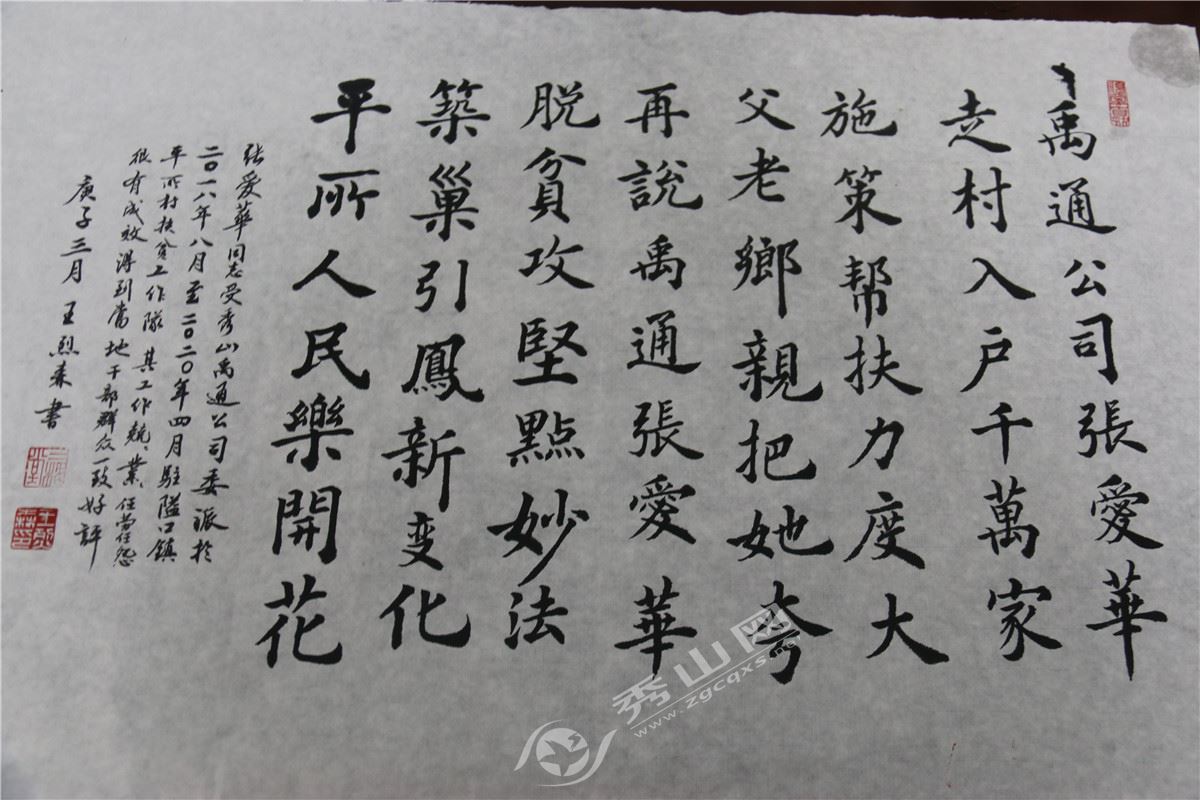 禹通公司張愛華
走村入户千萬家
施策帮扶力度大
父老鄉親把她夸
再説禹通張愛華
脱貧攻堅點妙法
築巢引鳳新变化
平所人民樂開花
张爱華同志受秀山禹通公司委派於
二〇一八年八月至二〇二〇年四月駐隘口鎮
平所村扶贫工作隊其工作兢、業、任劳任怨
很有成效得到當地干部群众一致好評
庚子三月 王烈森書
秀山网
www.zgcqxs.net